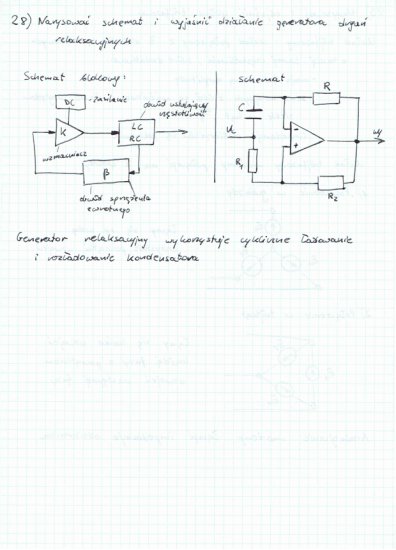 28) Narysować schemat i wyjaśnić działanie generatora drgań
relaksacyjnych
Schemat blokowy:
schemat
DC - zasilanie
obwód ustalający
częstotliwość
K
LC
RC
wzmacniacz
β
obwód sprzężenia
zwrotnego
R
C
-
+
R1
R2
wy
Generator relaksacyjny wykorzystuje cykliczne ładowanie
i rozładowanie kondensatora